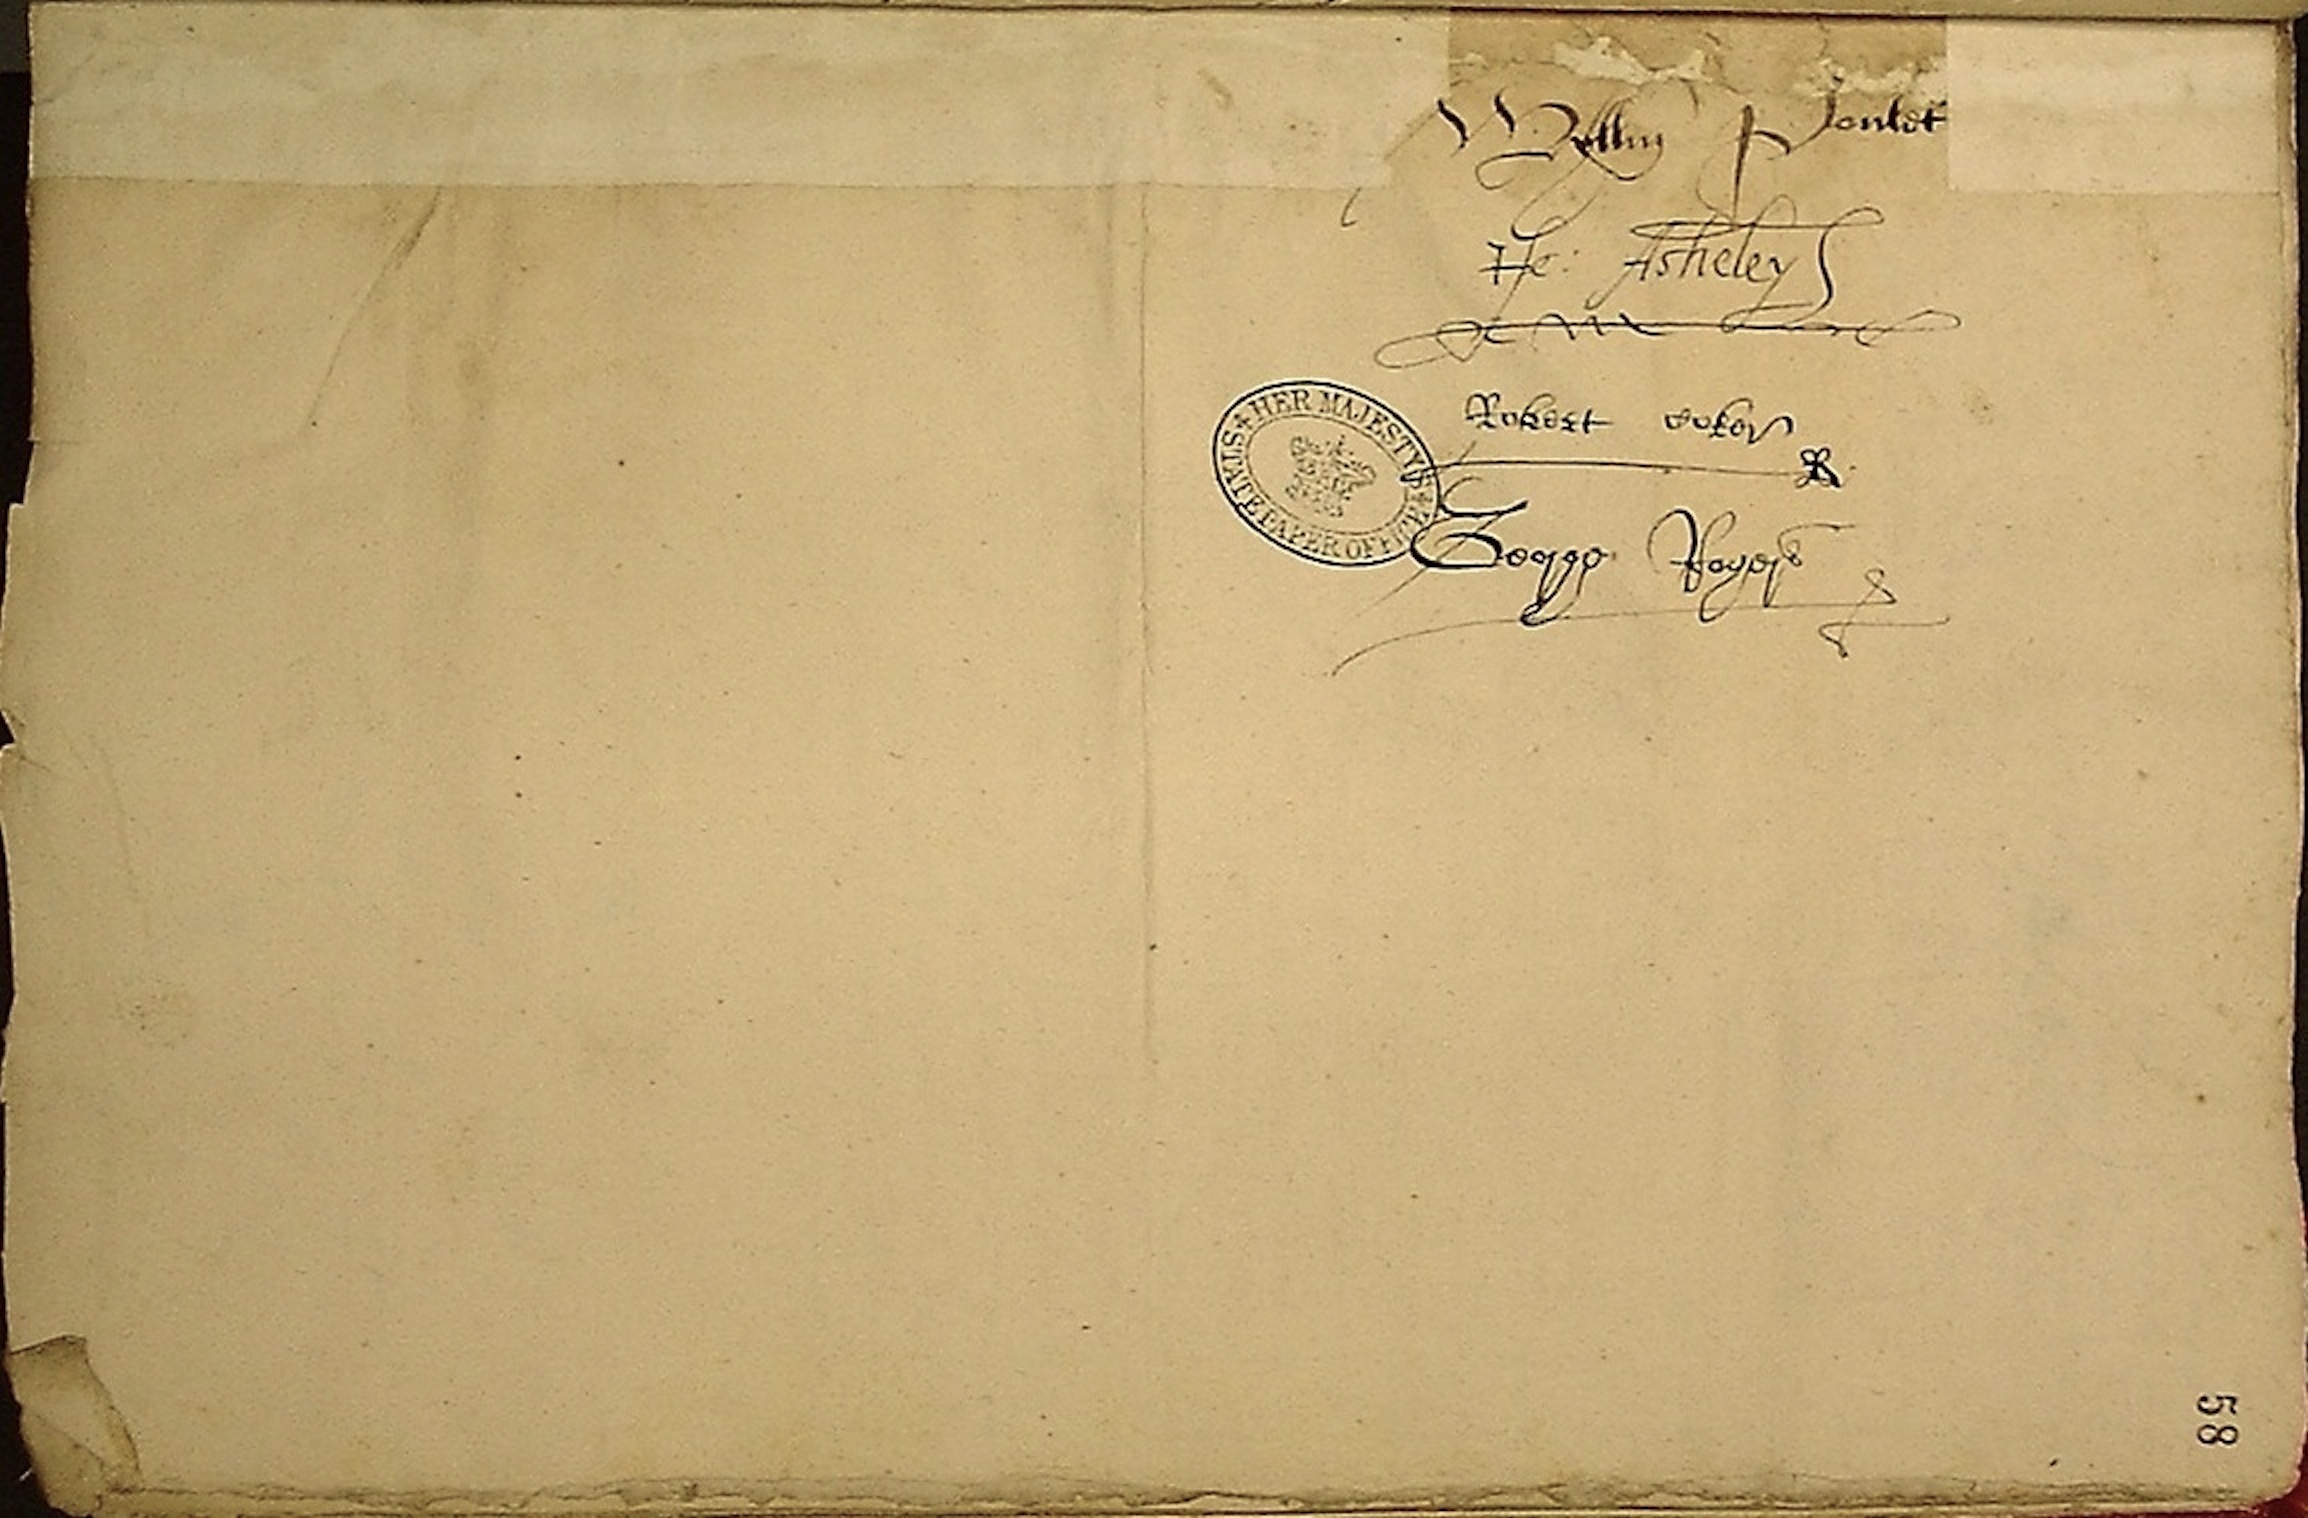 Wyllm Poulet
He: Asheley
Robert coker
R
George Rogers
HER MAJESTY'S STATE PAPER OFFICE
58